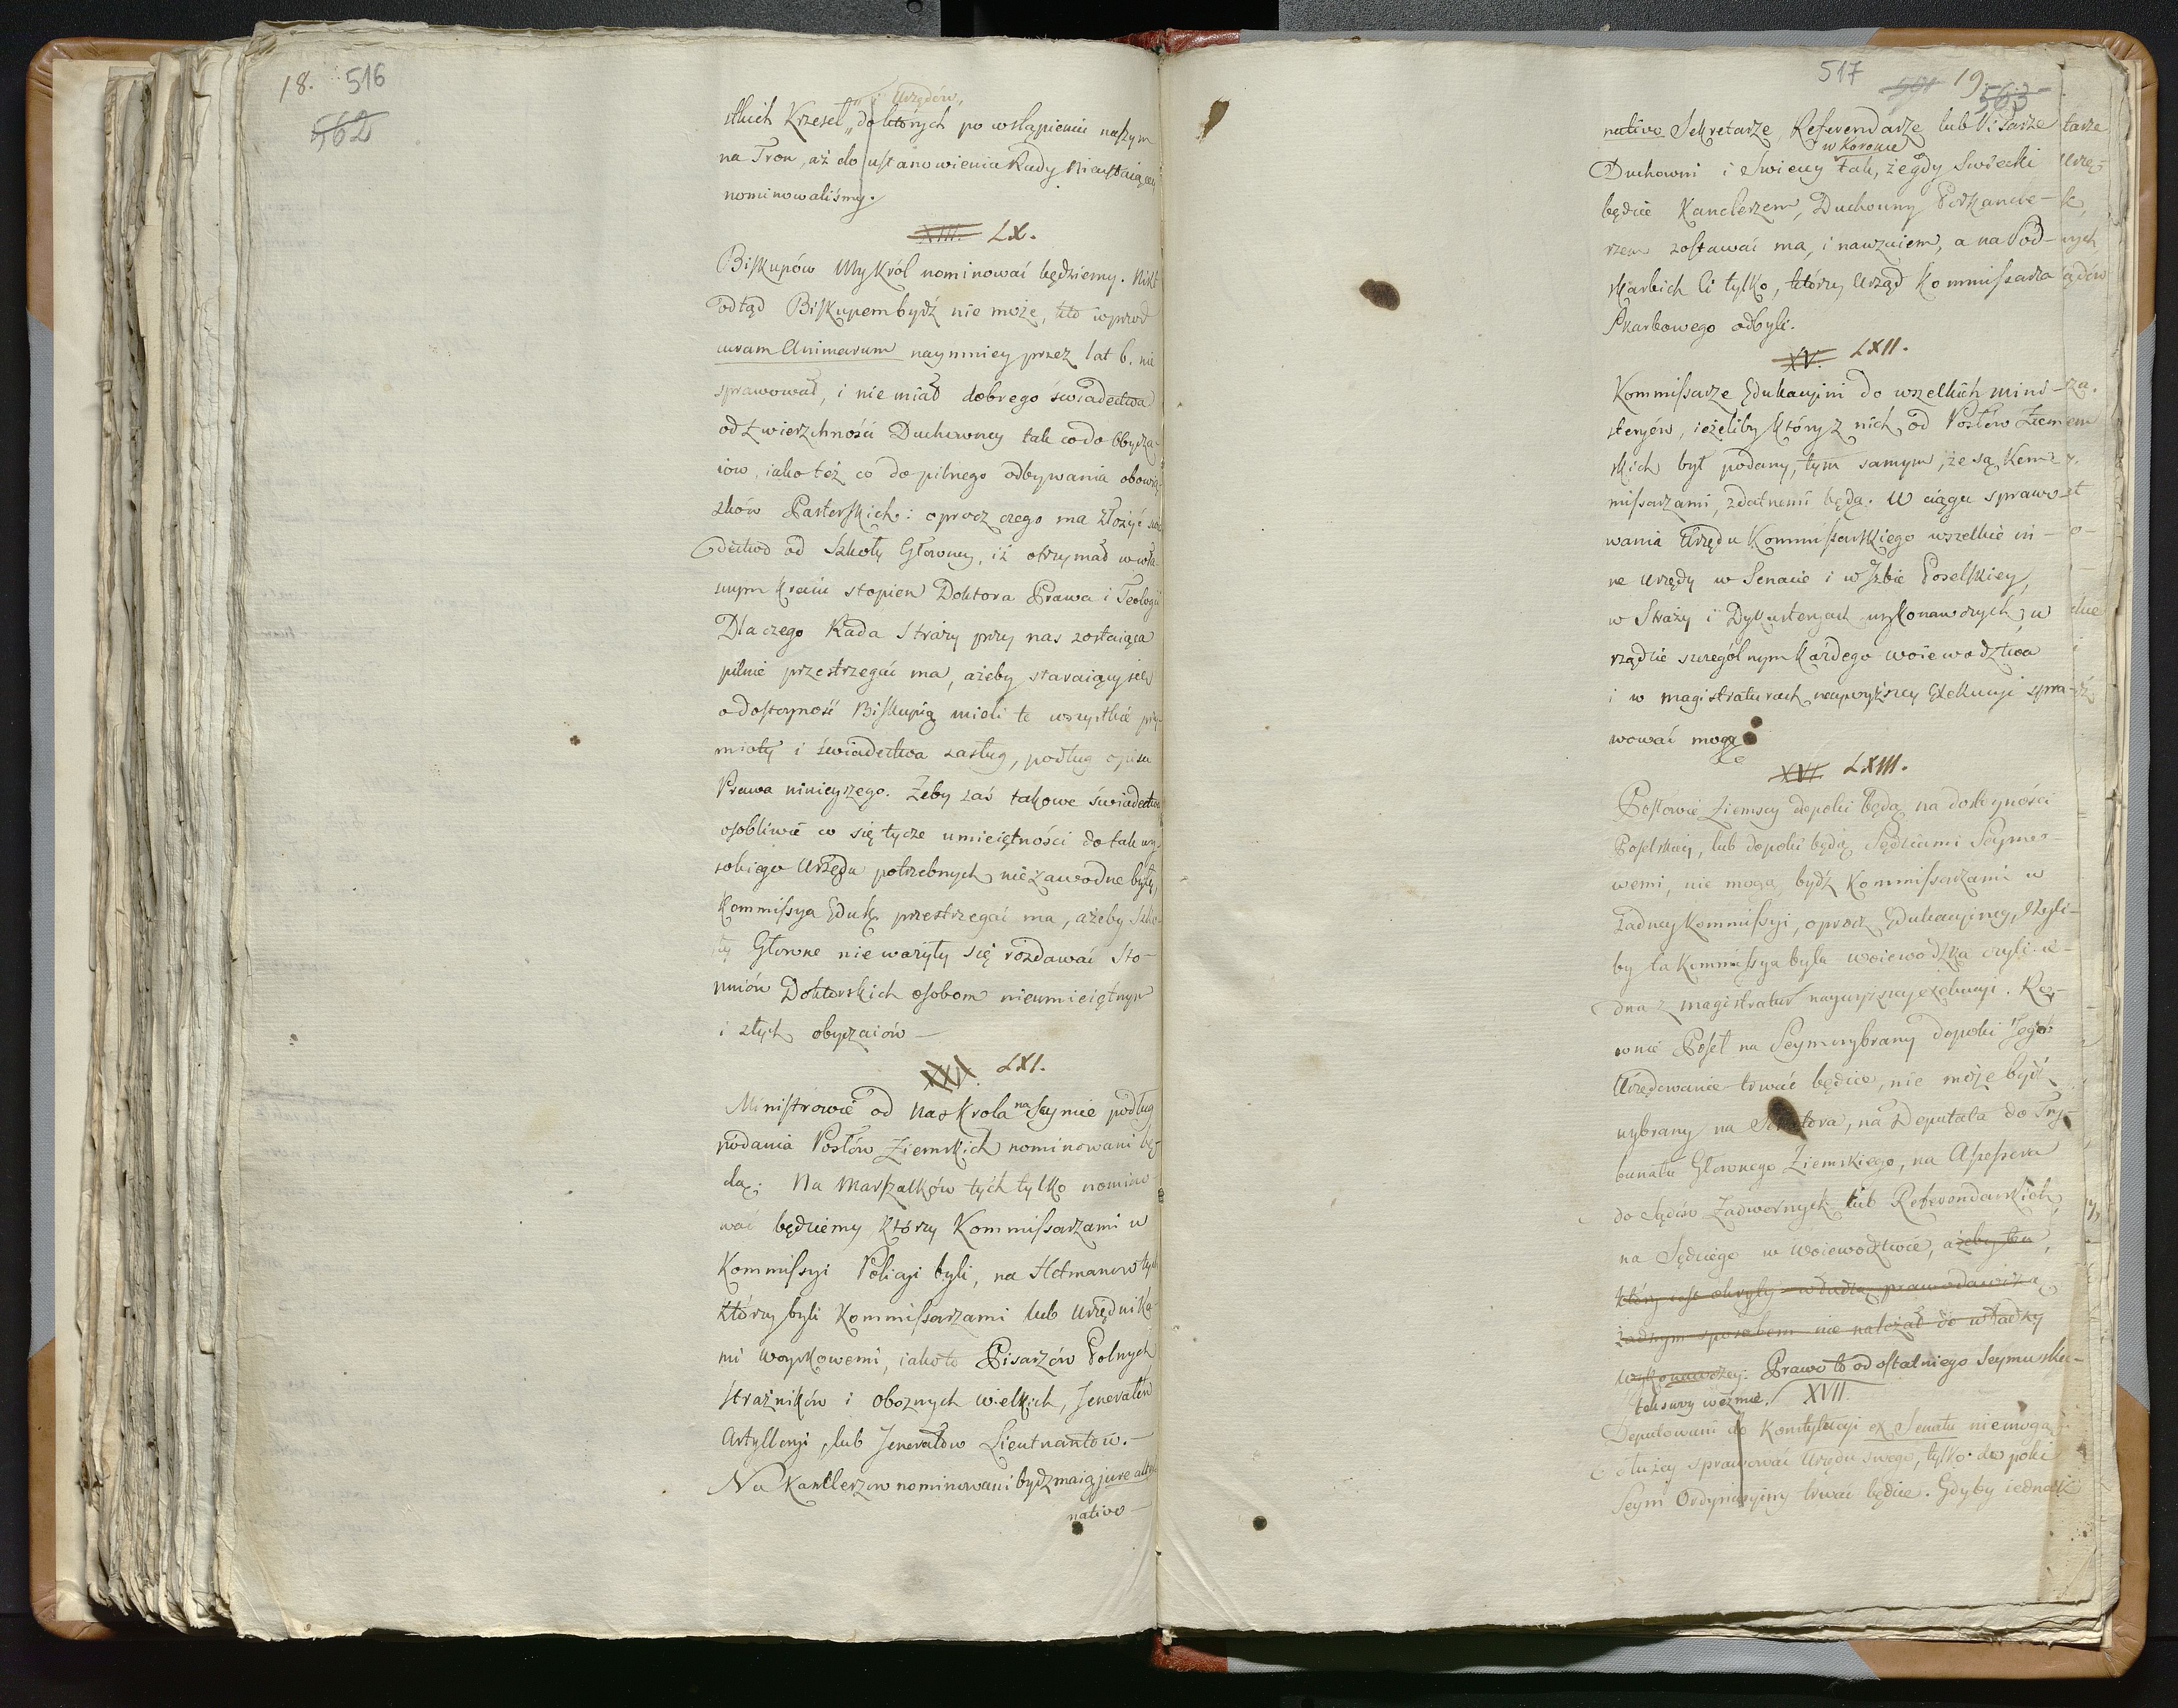 18. 516
562
i Urzędów,
stkich Krzeseł, do których po wstąpieniu naszym
na Tron, aż do ustanowienia Rady Nieustaiącey
nominowaliśmy.
XIII. LX.
Biskupów My Król nominować będziemy. Nikt
odtąd Biskupem bydź nie może, kto wprzod
curam Animarum naymniey przez lat 6. nie
sprawował, i nie miał dobrego świadectwa
od Zwierzchności Duchowney tak co do Obycza-
iów, iako też co do pilnego odbywania obowią-
zków Pasterskich: oprocz czego ma złożyć świa-
dectwo od Szkoły Głowney, iż otrzymał w wła-
snym kraiu stopień Doktora Prawa i Teologii
Dla czego Rada Straży przy nas zostaiąca
pilnie przestrzegać ma, ażeby staraiący się
o dostoyność Biskupią mieli te wszystkie przy-
mioty i świadectwa zasług, podług opisu
Prawa ninieyszego. Żeby zaś takowe świadectwa
osobliwie co się tycze umieiętności do tak wy-
sokiego Urzędu potrzebnych niezawodne były,
Kommissya Eduk. przestrzegać ma, ażeby Szko-
ły Głowne nie ważyły się rozdawać Sto-
pniów Doktorskich osobom nieumieiętnym
i złych obyczaiów —
XXI. LXI.
Ministrowie od Nas Krola na Seymie podług
podania Posłów Ziemskich nominowani bę-
dą. Na Marszałków tych tylko nomino-
wać będziemy którzy Kommissarzami w
Kommissyi Policyi byli, na Hetmanow tych
którzy byli Kommissarzami lub Urzędnika-
mi woyskowemi, iako to Pisarzów Polnych
Strażników i obożnych wielkich, Jenerałów
Artylleryi, lub Jenerałow Lieutnantow. —
Na Kanclerzow nominowani bydź maią jure alter-
nativo —
517 19.
563
nativo Sekretarze, Referendarze lub Pisarze
w Koronie
Duchowni i Swieccy tak, że gdy Swiecki
będzie Kanclerzem, Duchowny Podkancle-
rzem zostawać ma, i nawzaiem, a na Pod-
skarbich ci tylko, którzy Urząd Kommissarza
Skarbowego odbyli.
XV. LXII.
Kommissarze Edukacyini do wszelkich mini-
steryów, ieżeliby który z nich od Posłów Ziem-
skich był podany, tym samym, że są Kom-
missarzami, zdatnemi będą. W ciągu sprawo-
wania Urzędu Kommissarskiego wszelkie in-
ne Urzędy w Senacie i w Izbie Poselskiey,
w Straży i Dykasteryach wykonawczych, w
rządzie szczególnym każdego woiewodztwa
i w magistraturach naywyższey Exekucyi spra-
wować mogą
XVI. LXIII.
Posłowie Ziemscy dopoki będą na dostoyności
Poselskiey, lub dopoki będą Sędziami Seymo-
wemi, nie mogą bydź Kommissarzami w
żadney Kommissyi, oprocz Edukacyiney, Jeżeli-
by ta Kommissya była woiewodzka czyli ie-
dna z magistratur naywyższey exekucyi. Ró-
wnie Poseł na Seym wybrany dopoki Jego
Urzędowanie trwać będzie, nie może bydź
wybrany na Senatora, na Deputata do Try-
bunału Głownego Ziemskiego, na Assessora
do sądów Zadwornych lub Referendarskich
na Sędziego w Woiewodztwie, ażeby ten,
który iest okryty władzą prawodawczą
żadnym sposobem nie należał do władzy
wykonawczey. Prawo to od ostatniego Seymu sku-
tek swoy weźmie. XVII.
Deputowani do Konstytucyi ex Senatu niemogą
dłużey sprawować Urzędu swego, tylko dopoki
Seym Ordynaryiny trwać będzie. Gdyby iednak